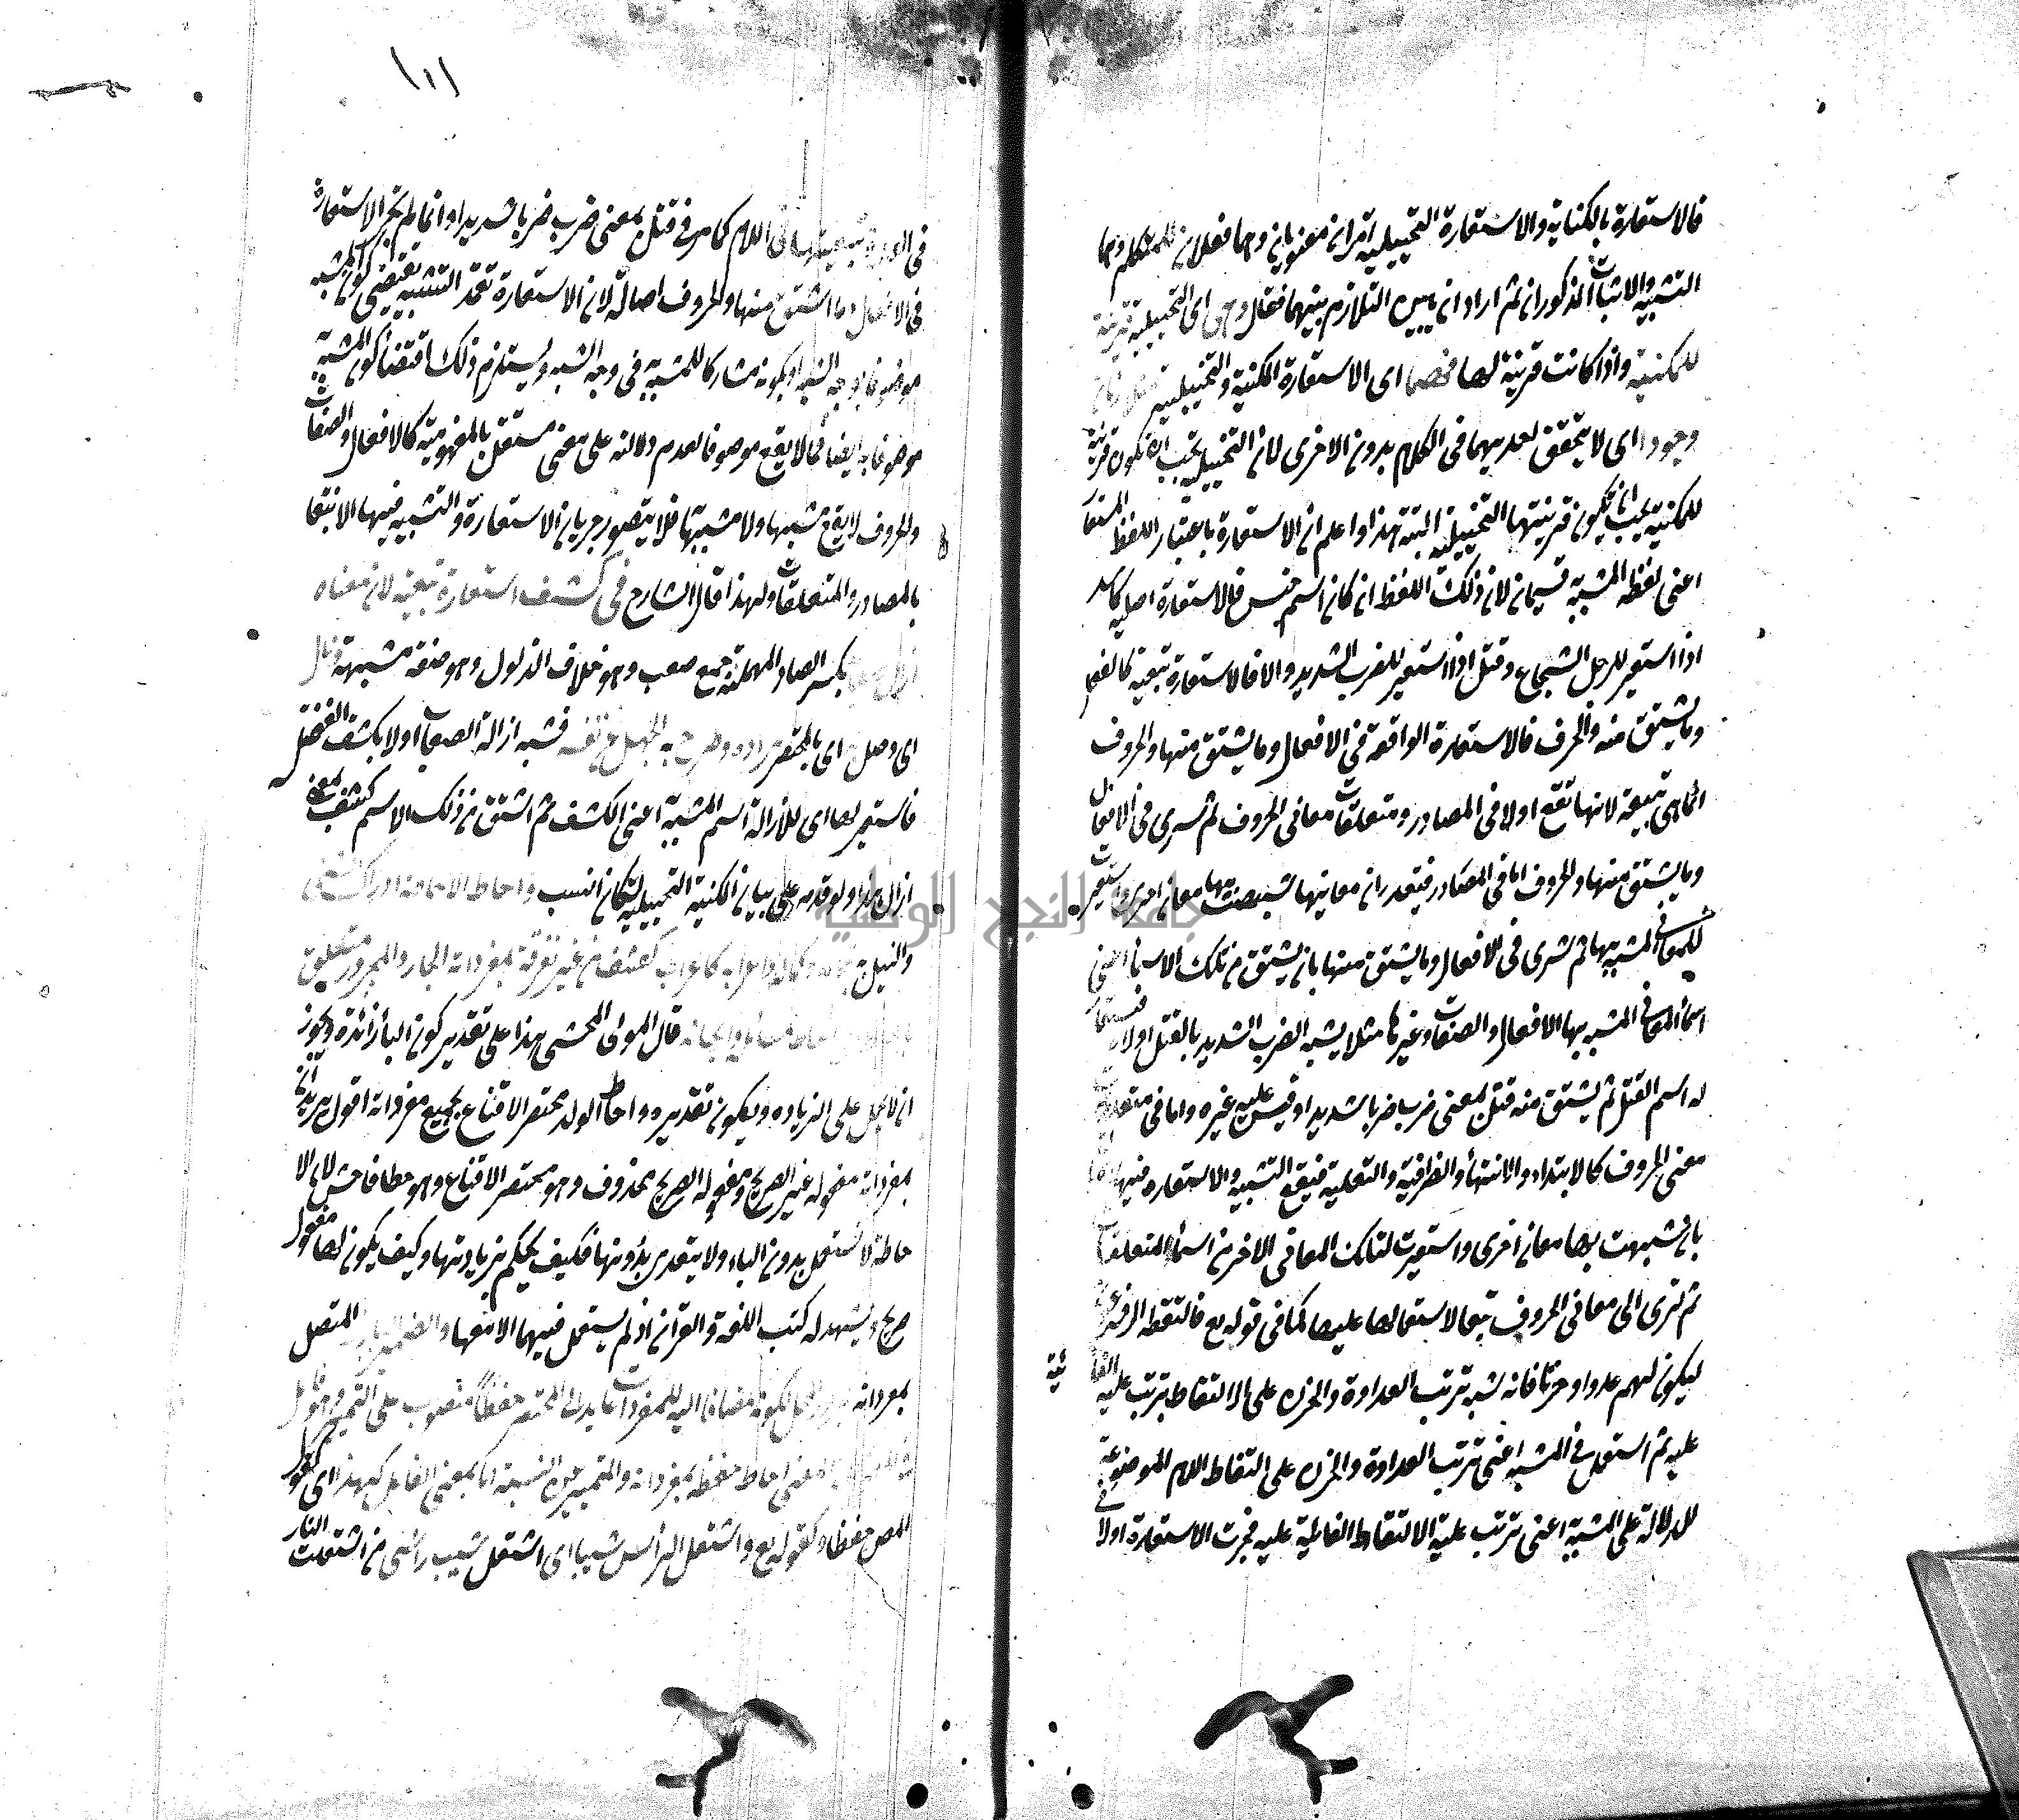 فالاستعارة بالكناية والاستعارة التخييلية امران معنويان وهما فعلان للمتكلم وهما
التشبيه والاثبات المذكوران ثم اراد ان يبين التلازم بينهما فقال وهى اى التخييلية قرينة
للمكنية واذا كانت قرينة لها فهما اى الاستعارة المكنية والتخييلية
وجودا اى لا يتحقق احديهما فى الكلام بدون الاخرى لان التخييلية يجب ان تكون قرينة
للمكنية يجب ان تكون قرينتها التخييلية البتة هذا واعلم ان الاستعارة باعتبار اللفظ المستعار
اعنى لفظ المشبه به قسمان لان ذلك اللفظ ان كان اسم جنس فالاستعارة اصلية كاسد
اذا استعير للرجل الشجاع وقتل اذا استعير للضرب الشديد والا فالاستعارة تبعية كالفعل
وما يشتق منه والحرف فالاستعارة الواقعة فى الافعال وما يشتق منها والحروف
انما هى تبعية لانها تقع اولا فى المصادر ومتعلقات معانى الحروف ثم تسرى فى الافعال
وما يشتق منها والحروف اما فى المصادر فيقدر ان معانيها شبهت بها معان اخرى واستعير
للمعانى المشبه بها ثم تسرى فى الافعال وما يشتق منها بان يشتق من تلك الاسماء اعنى
اسماء المعانى المشبه بها الافعال والصفات وغيرها مثلا يشبه الضرب الشديد بالقتل اولا فيستعار
له اسم القتل ثم يشتق منه قتل بمعنى ضرب ضربا شديدا وقس عليه غيره واما فى متعلق
معنى الحروف كالابتداء والانتهاء والظرفية والتعلية فيقع التشبيه والاستعاره فيها
بان شبهت بها معان اخرى واستعيرت لتلك المعانى الاخر من اسماء المتعلقات
ثم تسرى الى معانى الحروف تبعا لاستعمالها عليها كما فى قوله تع فالتقطه ال فرعون
ليكون لهم عدوا وحزنا فانه شبه ترتب العداوة والحزن على الالتقاط بترتب عليه الغا
ئية
عليه ثم استعمل فى المشبه اعنى ترتب العداوة والحزن على التقاط اللام الموضوعة
للدلالة على المشبه به اعنى ترتب علية الالتقاط الغائية عليه فجرت الاستعارة اولا فى
١٠١
فى اللام كما مر فى قتل بمعنى ضرب ضربا شديدا وانما لم تجر الاستعارة
فى الافعال وما اشتق منها والحروف اصالة لان الاستعارة تعتمد التشبيه يقتضى كون المشبه
موصوفا بوجه الشبه او بكونه مشاركا للمشبه به فى وجه الشبه ويستلزم ذلك اقتضاء كون المشبه به
موصوفا به ايضا فما لا يقع موصوفا لعدم دلالته على معنى مستقل بالمفهومية كالافعال والصفات
والحروف لا يقع مشبها ولا مشبها بها فلا يتصور جريان الاستعارة والتشبيه فيها الا بتبعا
بالمصادر والمتعلقات ولهذا قال الشارح فى كشف استعارة تبعية لان معناه
بكسر الصاد المهملة جمع صعب وهو خلاف الذلول وهو صفة مشبهة
اى وصل اى بالمختصر فشبه ازالة الصعاب اولا بكشف
فاستعير لها اى للازالة اسم المشبه به اعنى الكشف ثم اشتق من ذلك الاسم كشف بمعنى
ازال هذا ولو قدمه على بيان المكنية التخييلية لكان انسب واحاط
كاعراب كشف من غير تفرقة بمفرداته الجار والمجرور متعلق
قال المولى المحشى هذا على تقدير كون الباء زائدة ويجوز
ان لا يحمل على الزيادة ويكون تقديره واحاط الولد مختصر الاقناع بجميع مفرداته اقول يريد ان
بمفرداته مفعوله غير الصريح ومفعوله الصريح محذوف وهو مختصر الاقناع وهو خطا فاحش لان الا
حاطة لا تستعمل بدون الباء ولا يتعدى بدونها فكيف يحكم بزيادتها وكيف يكون لها مفعول
صريح ويشهد له كتب اللغة والقران اذ لم يستعمل فيهما الا معها والضمير البارز المتصل
بمفرداته لكونه مضافا اليه للمفردات عايد الى المختصر حفظا منصوب على التمييز
المعنى احاط حفظه بمفرداته والتمييز عن النسبة اما بمعنى الفاعل كهذا اى كقول
المص حفظا وكقوله تع واشتعل الراس شيبا اى اشتعل شيب راسى من اشتعلت النار